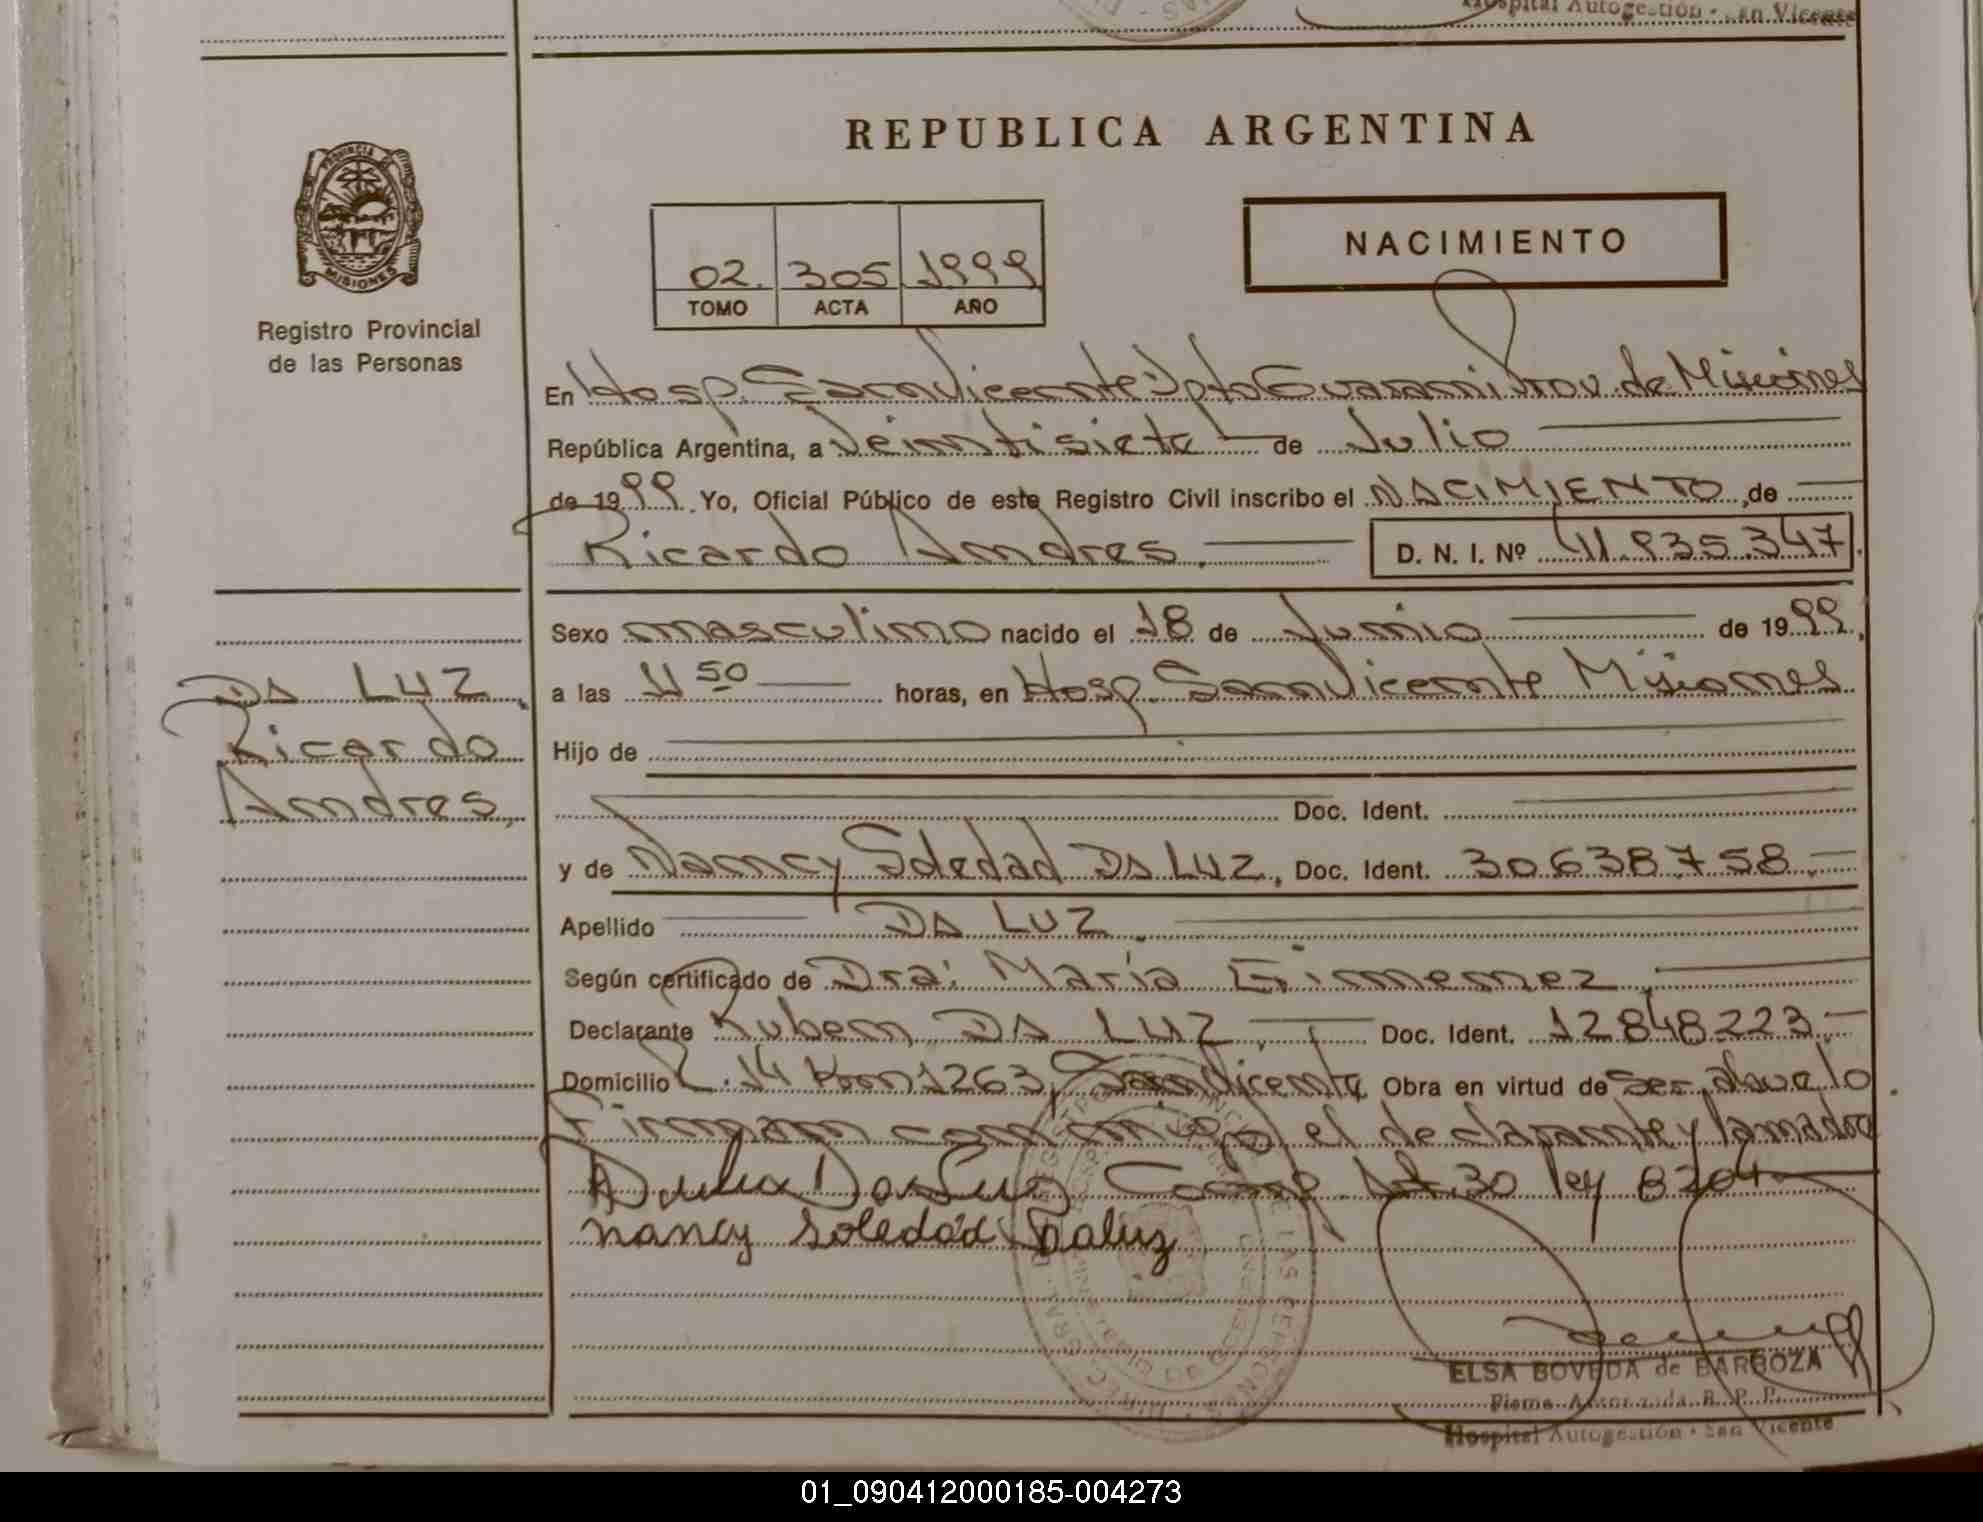 Hospital Autogestión - San Vicente
REPUBLICA ARGENTINA
PROVINCIA DE
MISIONES
Registro Provincial
de las Personas
NACIMIENTO
02. 305 1999
TOMO ACTA AÑO
En Hosp. San Vicente Dpto Guarani Prov. de Misiones
República Argentina, a Veintisiete de Julio
de 1999. Yo, Oficial Público de este Registro Civil inscribo el NACIMIENTO, de
Ricardo Andres. D. N. I. Nº 41.935.347
Sexo masculino nacido el 18 de Junio de 1999,
a las 11 50 horas, en Hosp. San Vicente Misiones
Hijo de
Doc. Ident.
y de Nancy Soledad DA LUZ, Doc. Ident. 30.638.758.
Apellido DA LUZ.
Según certificado de Dra: María Gimenez,
Declarante Ruben DA LUZ, Doc. Ident. 12.848.223.
Domicilio R. 14 Km 1263, San Vicente Obra en virtud de ser abuelo
Firman conmigo el declarante y la madre
Da Luz Art. 30 ley 8204
nancy soledad Daluz
DA LUZ,
Ricardo
Andres,
ELSA BOVEDA de BARBOZA
Firma Autorizada R. P. P.
Hospital Autogestión - San Vicente
01_090412000185-004273